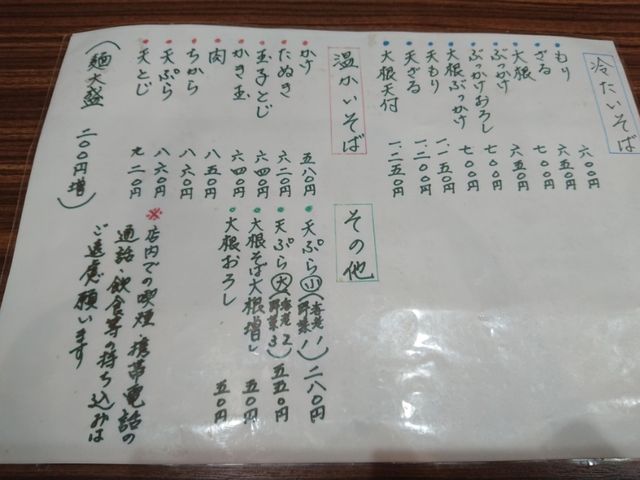 冷たいそば
もり 六〇〇円
ざる
大根 六五〇円
ぶっかけ 七〇〇円
ぶっかけおろし 七〇〇円
大根ぶっかけ
天もり 一.一五〇円
天ざる 一.二〇〇円
大根天付 一.二五〇円
温かいそば
かけ 五八〇円
たぬき 六二〇円
玉子とじ 六四〇円
かき玉 六四〇円
肉 八五〇円
ちから 八六〇円
天ぷら 八六〇円
天とじ 九二〇円
(麺大盛 二〇〇円増)
その他
天ぷら 小 (海老1 野菜1) 二八〇円
天ぷら 大 (海老2 野菜3) 五五〇円
大根そば大根増し 五〇円
大根おろし 五〇円
※店内での喫煙・携帯電話の
通話・飲食等の持ち込みは
ご遠慮願います